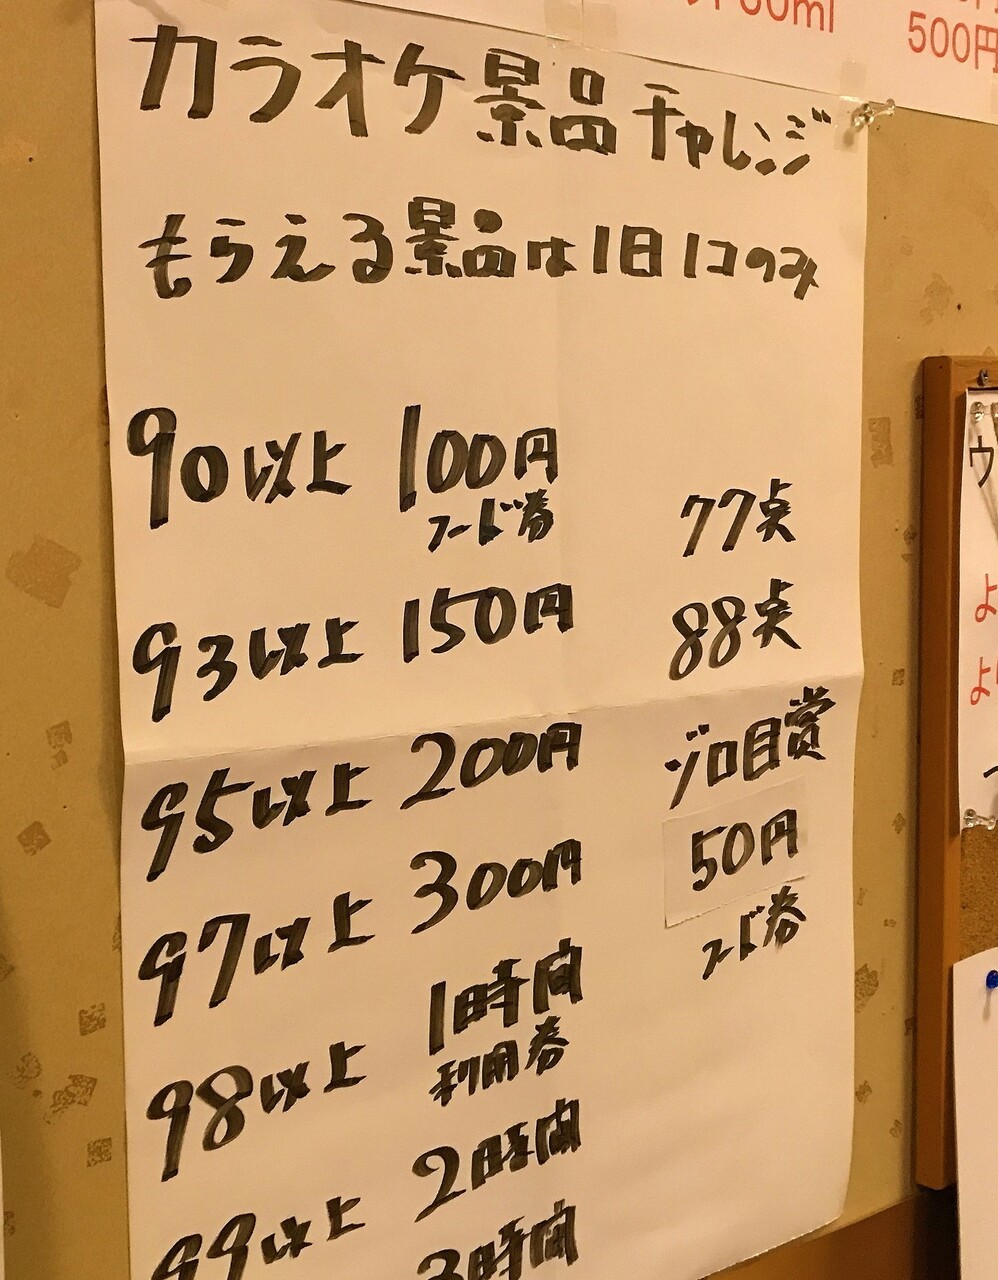 60ml
500円
カラオケ景品チャレンジ
もらえる景品は1日1コのみ
90以上 100円
フード券
93以上 150円
95以上 200円
97以上 300円
98以上 1時間
利用券
99以上 2時間
3時間
77点
88点
ゾロ目賞
50円
フード券
ウ
よ
よ